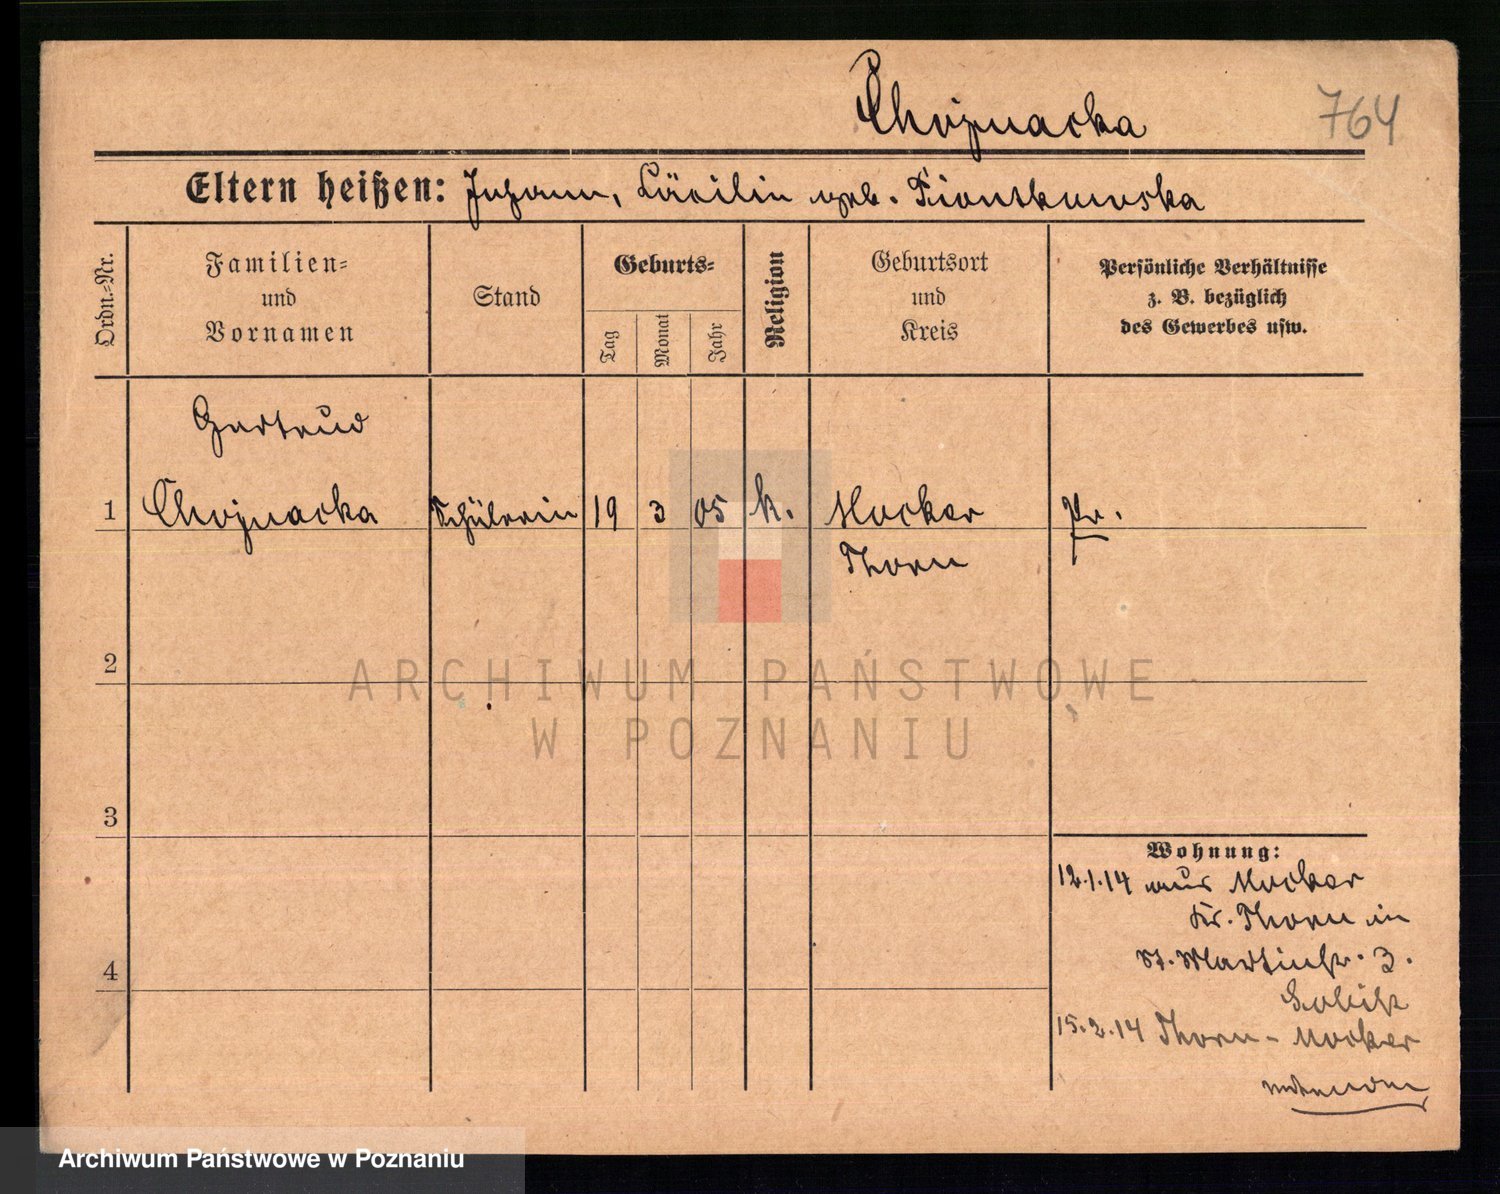 Chojnacka
764
Eltern heißen: Johann, Cäcilie geb. Piontkowska
Ordn.-Nr.
Familien-
und
Vornamen
Stand
Geburts-
Tag
Monat
Jahr
Religion
Geburtsort
und
Kreis
Persönliche Verhältnisse
z. B. bezüglich
des Gewerbes usw.
Gertrud
1 Chojnacka Schülerin 19 3 05 k. Mocker Pr.
Thorn
2
ARCHIWUM PAŃSTWOWE
W POZNANIU
3
Wohnung:
12.1.14 aus Mocker
Kr. Thorn in
4
St. Martinstr. 3.
15.2.14 Thorn - Mocker
Archiwum Państwowe w Poznaniu